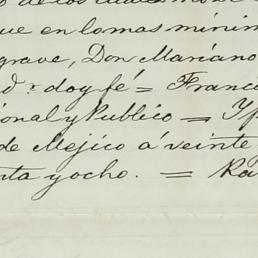 de los
que en lo mas minim
grave, Don Mariano
d.r doy fé = Franci
ional y Publico =
de Mejico á veinte
nta y ocho. = Ra